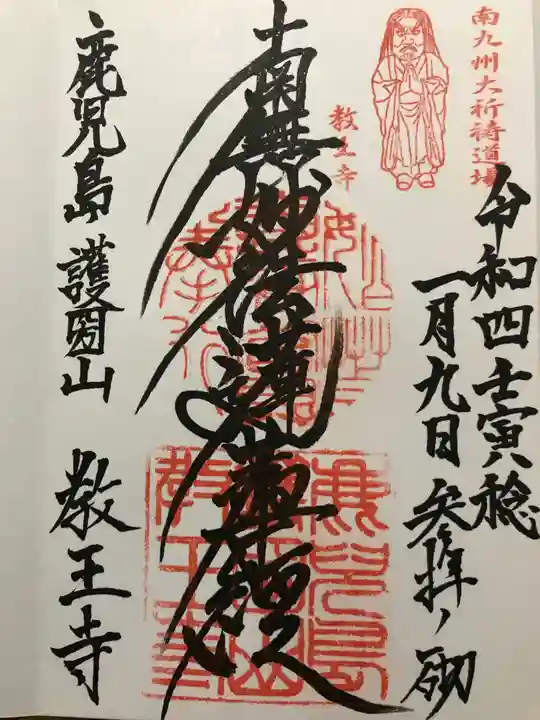 南九州大祈祷道場
教王寺
令和四壬寅稔
一月九日参拝ノ砌
南無妙法蓮華経
鹿児島 護国山 教王寺